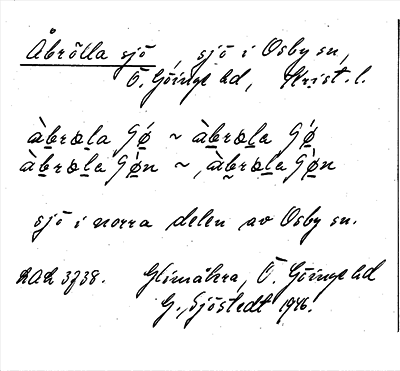 Åbrölla sjö, sjö i Osby sn,
Ö. Göinge hd, Krist. l.
àbrꜵla Gǿ ~ àbrꜵla Gǿ
àbrꜵla Gǿn ~ àbrꜵla Gǿn
sjö i norra delen av Osby sn.
Glimåkra, Ö. Göinge hd
G. Sjöstedt 1946.